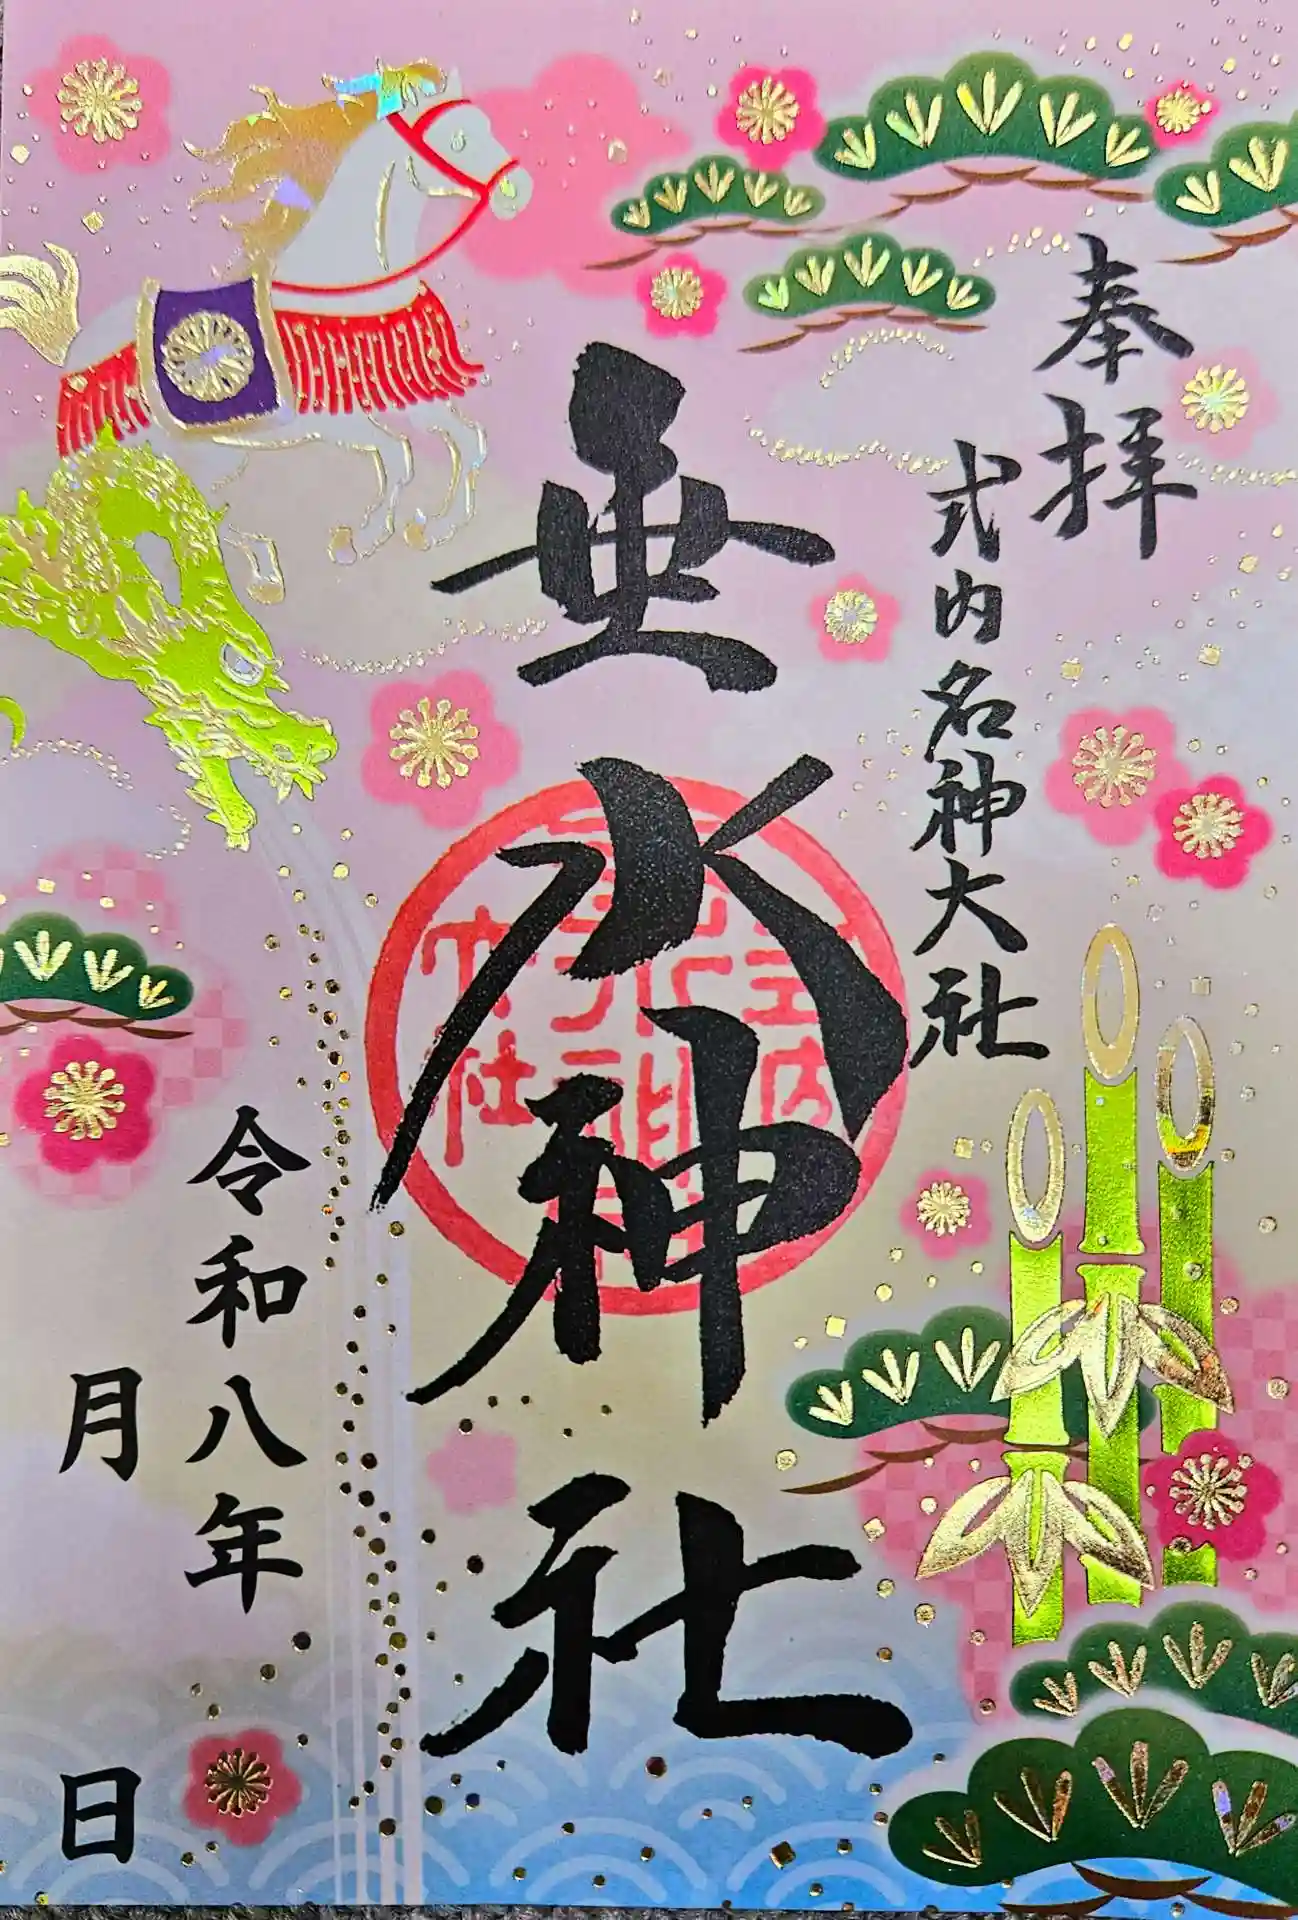 奉拝
式内名神大社
垂水神社
令和八年
月 日